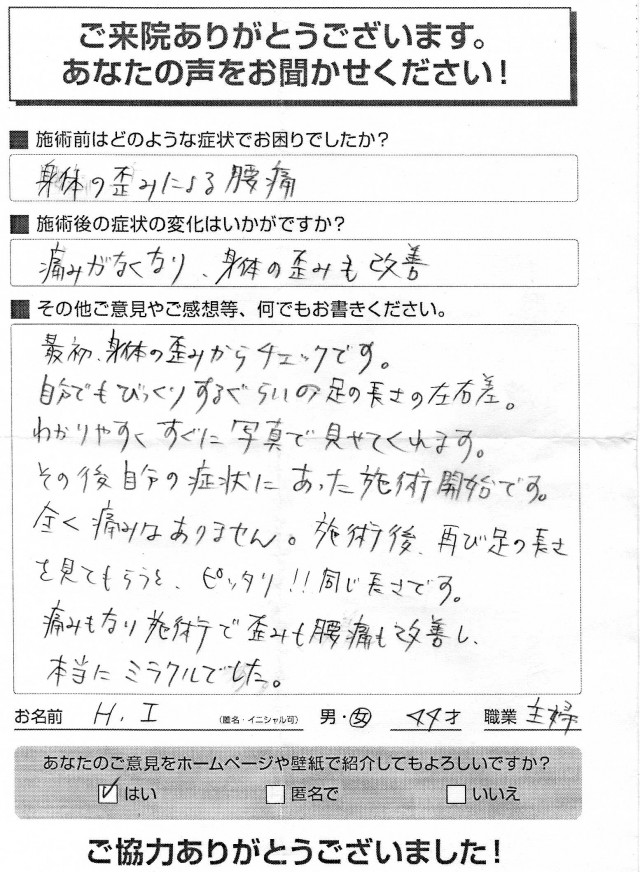 ご来院ありがとうございます。
あなたの声をお聞かせください！
■ 施術前はどのような症状でお困りでしたか？
身体の歪みによる腰痛
■ 施術後の症状の変化はいかがですか？
痛みがなくなり、身体の歪みも改善
■ その他ご意見やご感想等、何でもお書きください。
最初、身体の歪みからチェックです。
自分でもびっくりするぐらいの足の長さの左右差。
わかりやすくすぐに写真で見せてくれます。
その後自分の症状にあった施術開始です。
全く痛みはありません。施術後、再び足の長さ
を見てもらうと、ピッタリ!!同じ長さです。
痛みもなり施術で歪みも腰痛も改善し、
本当にミラクルでした。
お名前 H.I （匿名・イニシャル可） 男・女 44才 職業 主婦
あなたのご意見をホームページや壁紙で紹介してもよろしいですか？
☑ はい □ 匿名で □ いいえ
ご協力ありがとうございました！